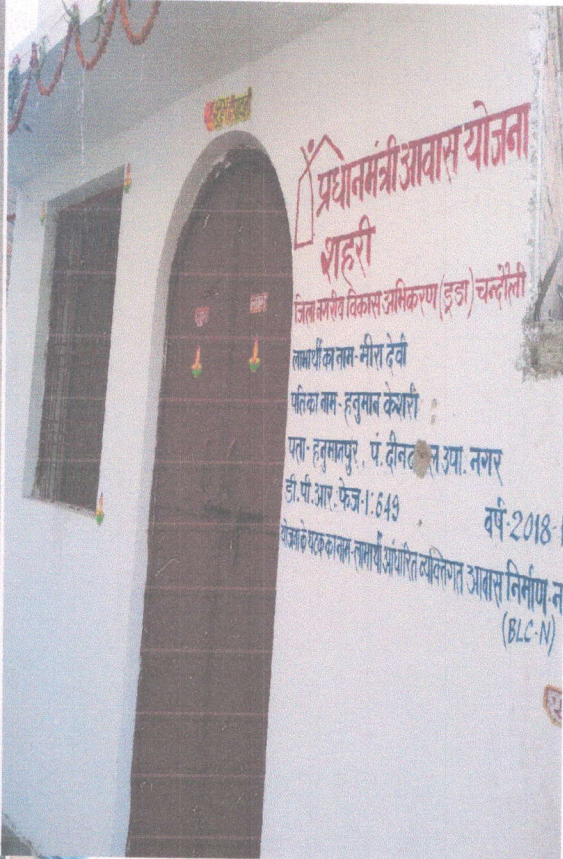 शुभ
लाभ
प्रधानमंत्री आवास योजना
शहरी
जिला नगरीय विकास अभिकरण (डूडा) चन्दौली
लाभार्थी का नाम - मीरा देवी
पति का नाम - हनुमान केशरी
पता - हनुमानपुर, पं. दीनद ल उपा. नगर
डी.पी.आर. फेज-1.649 वर्ष-2018-1
योजना के घटक का नाम - लाभार्थी आधारित व्यक्तिगत आवास निर्माण-न
(BLC-N)